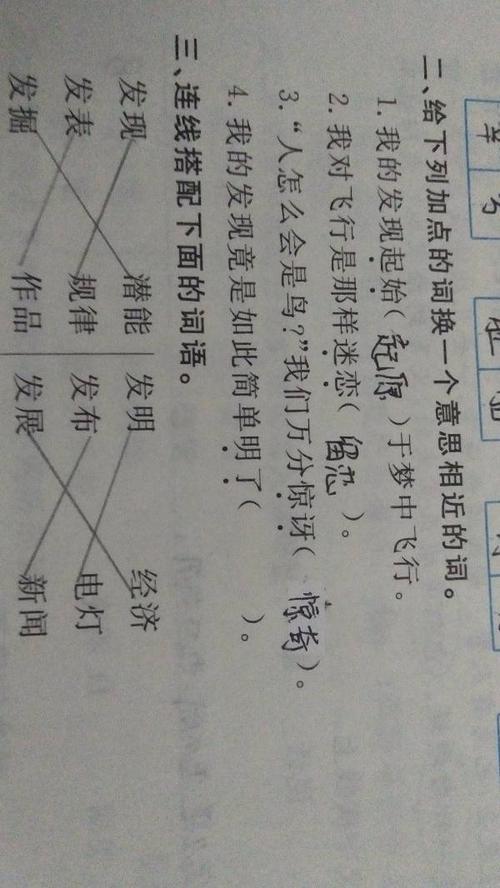 二、给下列加点的词换一个意思相近的词。
1. 我的发现起始(起源)于梦中飞行。
2. 我对飞行是那样迷恋(留恋)。
3. “人怎么会是鸟?”我们万分惊讶(惊奇)。
4. 我的发现竟是如此简单明了( )。
三、连线搭配下面的词语。
发现 潜能 发明 经济
发表 规律 发布 电灯
发掘 作品 发展 新闻